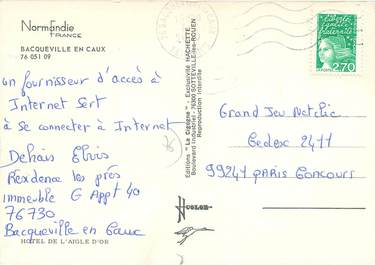 Normandie
FRANCE
BACQUEVILLE EN CAUX
76 051 09
un fournisseur d'accès à
Internet sert
à se connecter à Internet
Dehais
Résidence les prés
immeuble G Appt 40
76730
Bacqueville en Caux
HOTEL DE L'AIGLE D'OR
Editions "La Cigogne" - Exclusivité HACHETTE
Boulevard Industriel - 76300 SOTTEVILLE-lès-ROUEN
Reproduction interdite
liberté
égalité
fraternité
2,70
Grand Jeu Netclic
Cedex 2411
99247 PARIS CONCOURS